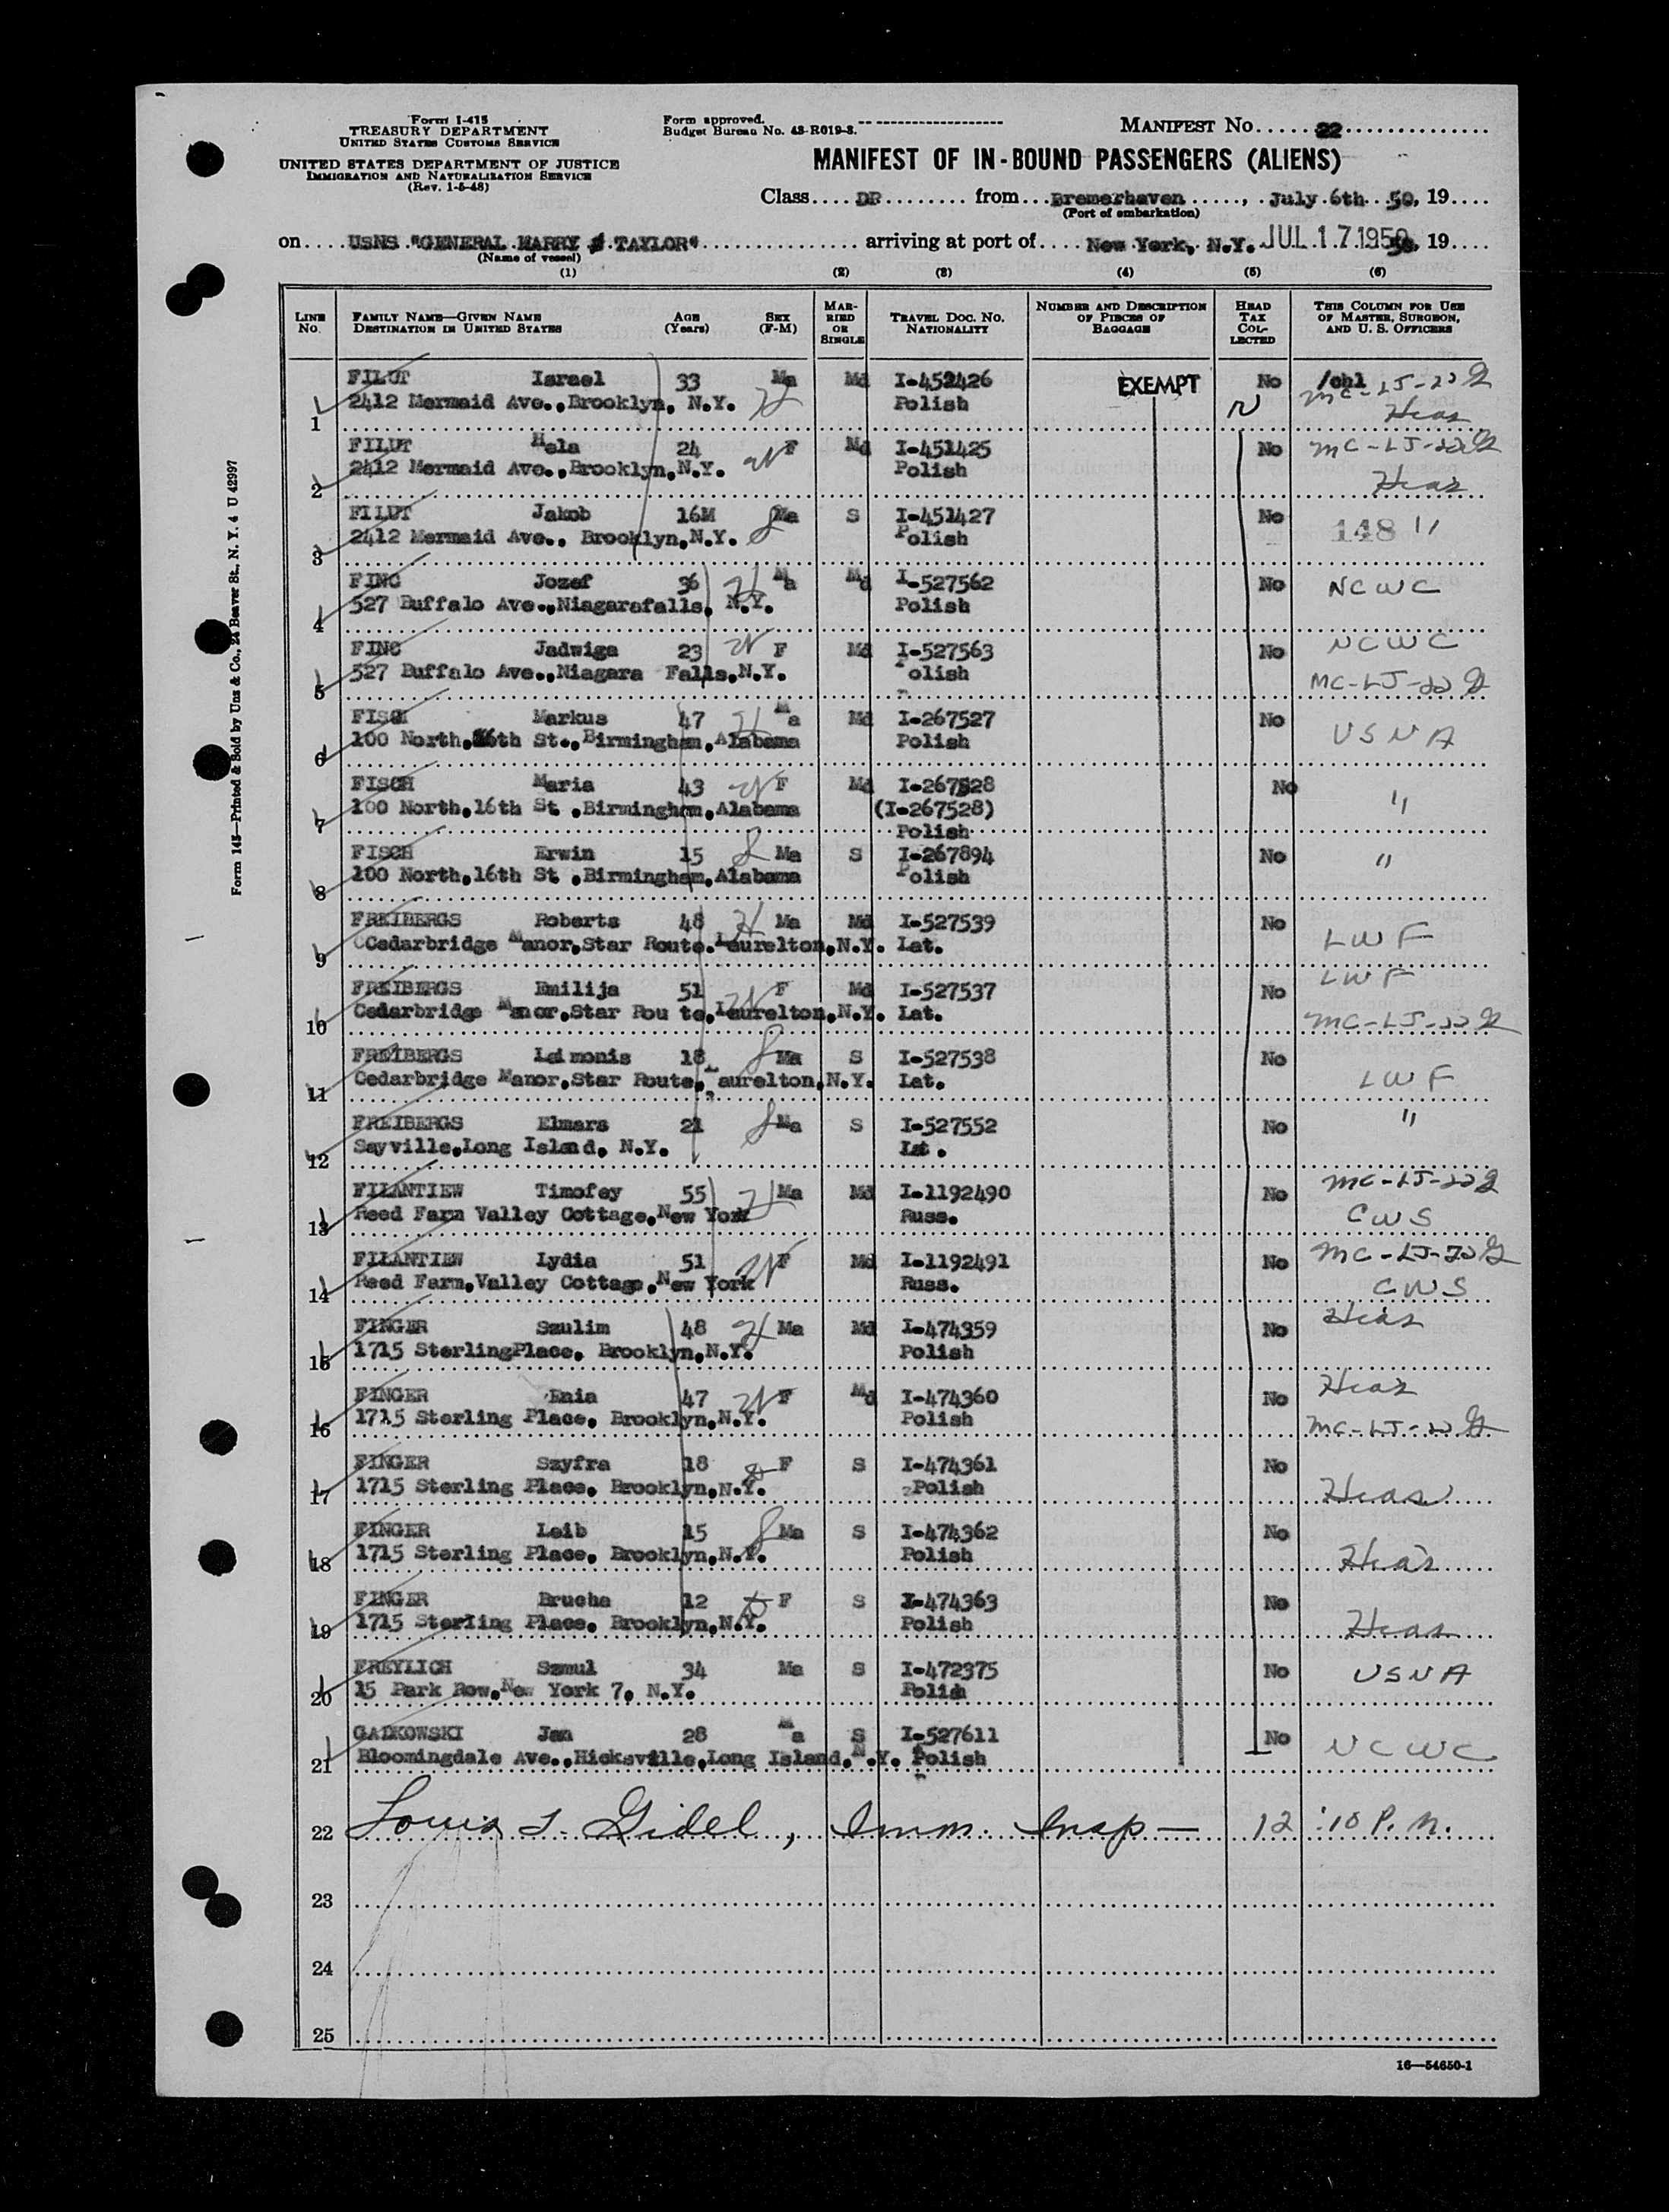 Form I-415
TREASURY DEPARTMENT
UNITED STATES CUSTOMS SERVICE
UNITED STATES DEPARTMENT OF JUSTICE
IMMIGRATION AND NATURALIZATION SERVICE
(Rev. 1-5-48)
Form approved.
Budget Bureau No. 43-R019-3.
MANIFEST NO. 22
MANIFEST OF IN-BOUND PASSENGERS (ALIENS)
Class DP from Bremerhaven, July 6th 50, 19
(Port of embarkation)
on USNS "GENERAL HARRY TAYLOR" arriving at port of New York, N.Y. JUL 17 1950, 19
(Name of vessel)
(1) (2) (3) (4) (5) (6)
LINE NO. FAMILY NAME—GIVEN NAME DESTINATION IN UNITED STATES AGE (Years) SEX (F-M) MARRIED OR SINGLE TRAVEL DOC. NO. NATIONALITY NUMBER AND DESCRIPTION OF PIECES OF BAGGAGE HEAD TAX COLLECTED THIS COLUMN FOR USE OF MASTER, SURGEON, AND U. S. OFFICERS
FILUT Israel 33 Ma Md I-452426 EXEMPT No /chl MC-LJ-22
1 2412 Mermaid Ave., Brooklyn, N.Y. H Polish N Hias
FILUT Hela 24 W F Md I-451425 No MC-LJ-22
2 2412 Mermaid Ave., Brooklyn, N.Y. Polish Hias
FILUT Jakob 16M S Ma S I-451427 No 148 "
3 2412 Mermaid Ave., Brooklyn, N.Y. Polish
FINC Jozef 36 H Ma Md I-527562 No NCWC
4 527 Buffalo Ave., Niagarafalls, N.Y. Polish
FINC Jadwiga 23 W F Md I-527563 No NCWC
5 527 Buffalo Ave., Niagara Falls, N.Y. Polish MC-LJ-22
FISCH Markus 47 H Ma Md I-267527 No USNA
6 100 North, 16th St., Birmingham, Alabama Polish
FISCH Maria 43 W F Md I-267528 No "
7 100 North, 16th St., Birmingham, Alabama (I-267528)
Polish
FISCH Erwin 15 S Ma S I-267894 No "
8 100 North, 16th St., Birmingham, Alabama Polish
FREIBERGS Roberts 48 H Ma Md I-527539 No LWF
9 Cedarbridge Manor, Star Route. Laurelton, N.Y. Lat.
FREIBERGS Emilija 51 W F Md I-527537 No LWF
10 Cedarbridge Manor, Star Rou te, Laurelton, N.Y. Lat. MC-LJ-22
FREIBERGS Laimonis 18 S Ma S I-527538 No LWF
11 Cedarbridge Manor, Star Route, Laurelton, N.Y. Lat.
FREIBERGS Elmars 21 S Ma S I-527552 No "
12 Sayville, Long Island, N.Y. Lat.
FILANTIEW Timofey 55 H Ma Md I-1192490 No MC-LJ-22
13 Reed Farm Valley Cottage, New York Russ. CWS
FILANTIEW Lydia 51 W F Md I-1192491 No MC-LJ-22
14 Reed Farm, Valley Cottage, New York Russ. CWS
FINGER Szulim 48 H Ma Md I-474359 No Hias
15 1715 SterlingPlace, Brooklyn, N.Y. Polish
FINGER Enia 47 W F Md I-474360 No Hias
16 1715 Sterling Place, Brooklyn, N.Y. Polish MC-LJ-22
FINGER Szyfra 18 F S I-474361 No
17 1715 Sterling Place, Brooklyn, N.Y. Polish Hias
FINGER Leib 15 S Ma S I-474362 No
18 1715 Sterling Place, Brooklyn, N.Y. Polish Hias
FINGER Brucha 12 F S I-474363 No
19 1715 Sterling Place, Brooklyn, N.Y. Polish Hias
FREYLICH Szmul 34 Ma S I-472375 No USNA
20 15 Park Row, New York 7, N.Y. Polish
GAIKOWSKI Jan 28 Ma S I-527611 No NCWC
21 Bloomingdale Ave., Hicksville, Long Island, N.Y. Polish
22 Louis Gidel, Imm. Insp — 12:10 P.M.
23
24
25
16—54650-1
Form 145—Printed & Sold by Unz & Co., 24 Beaver St., N. Y. 4 U 42997